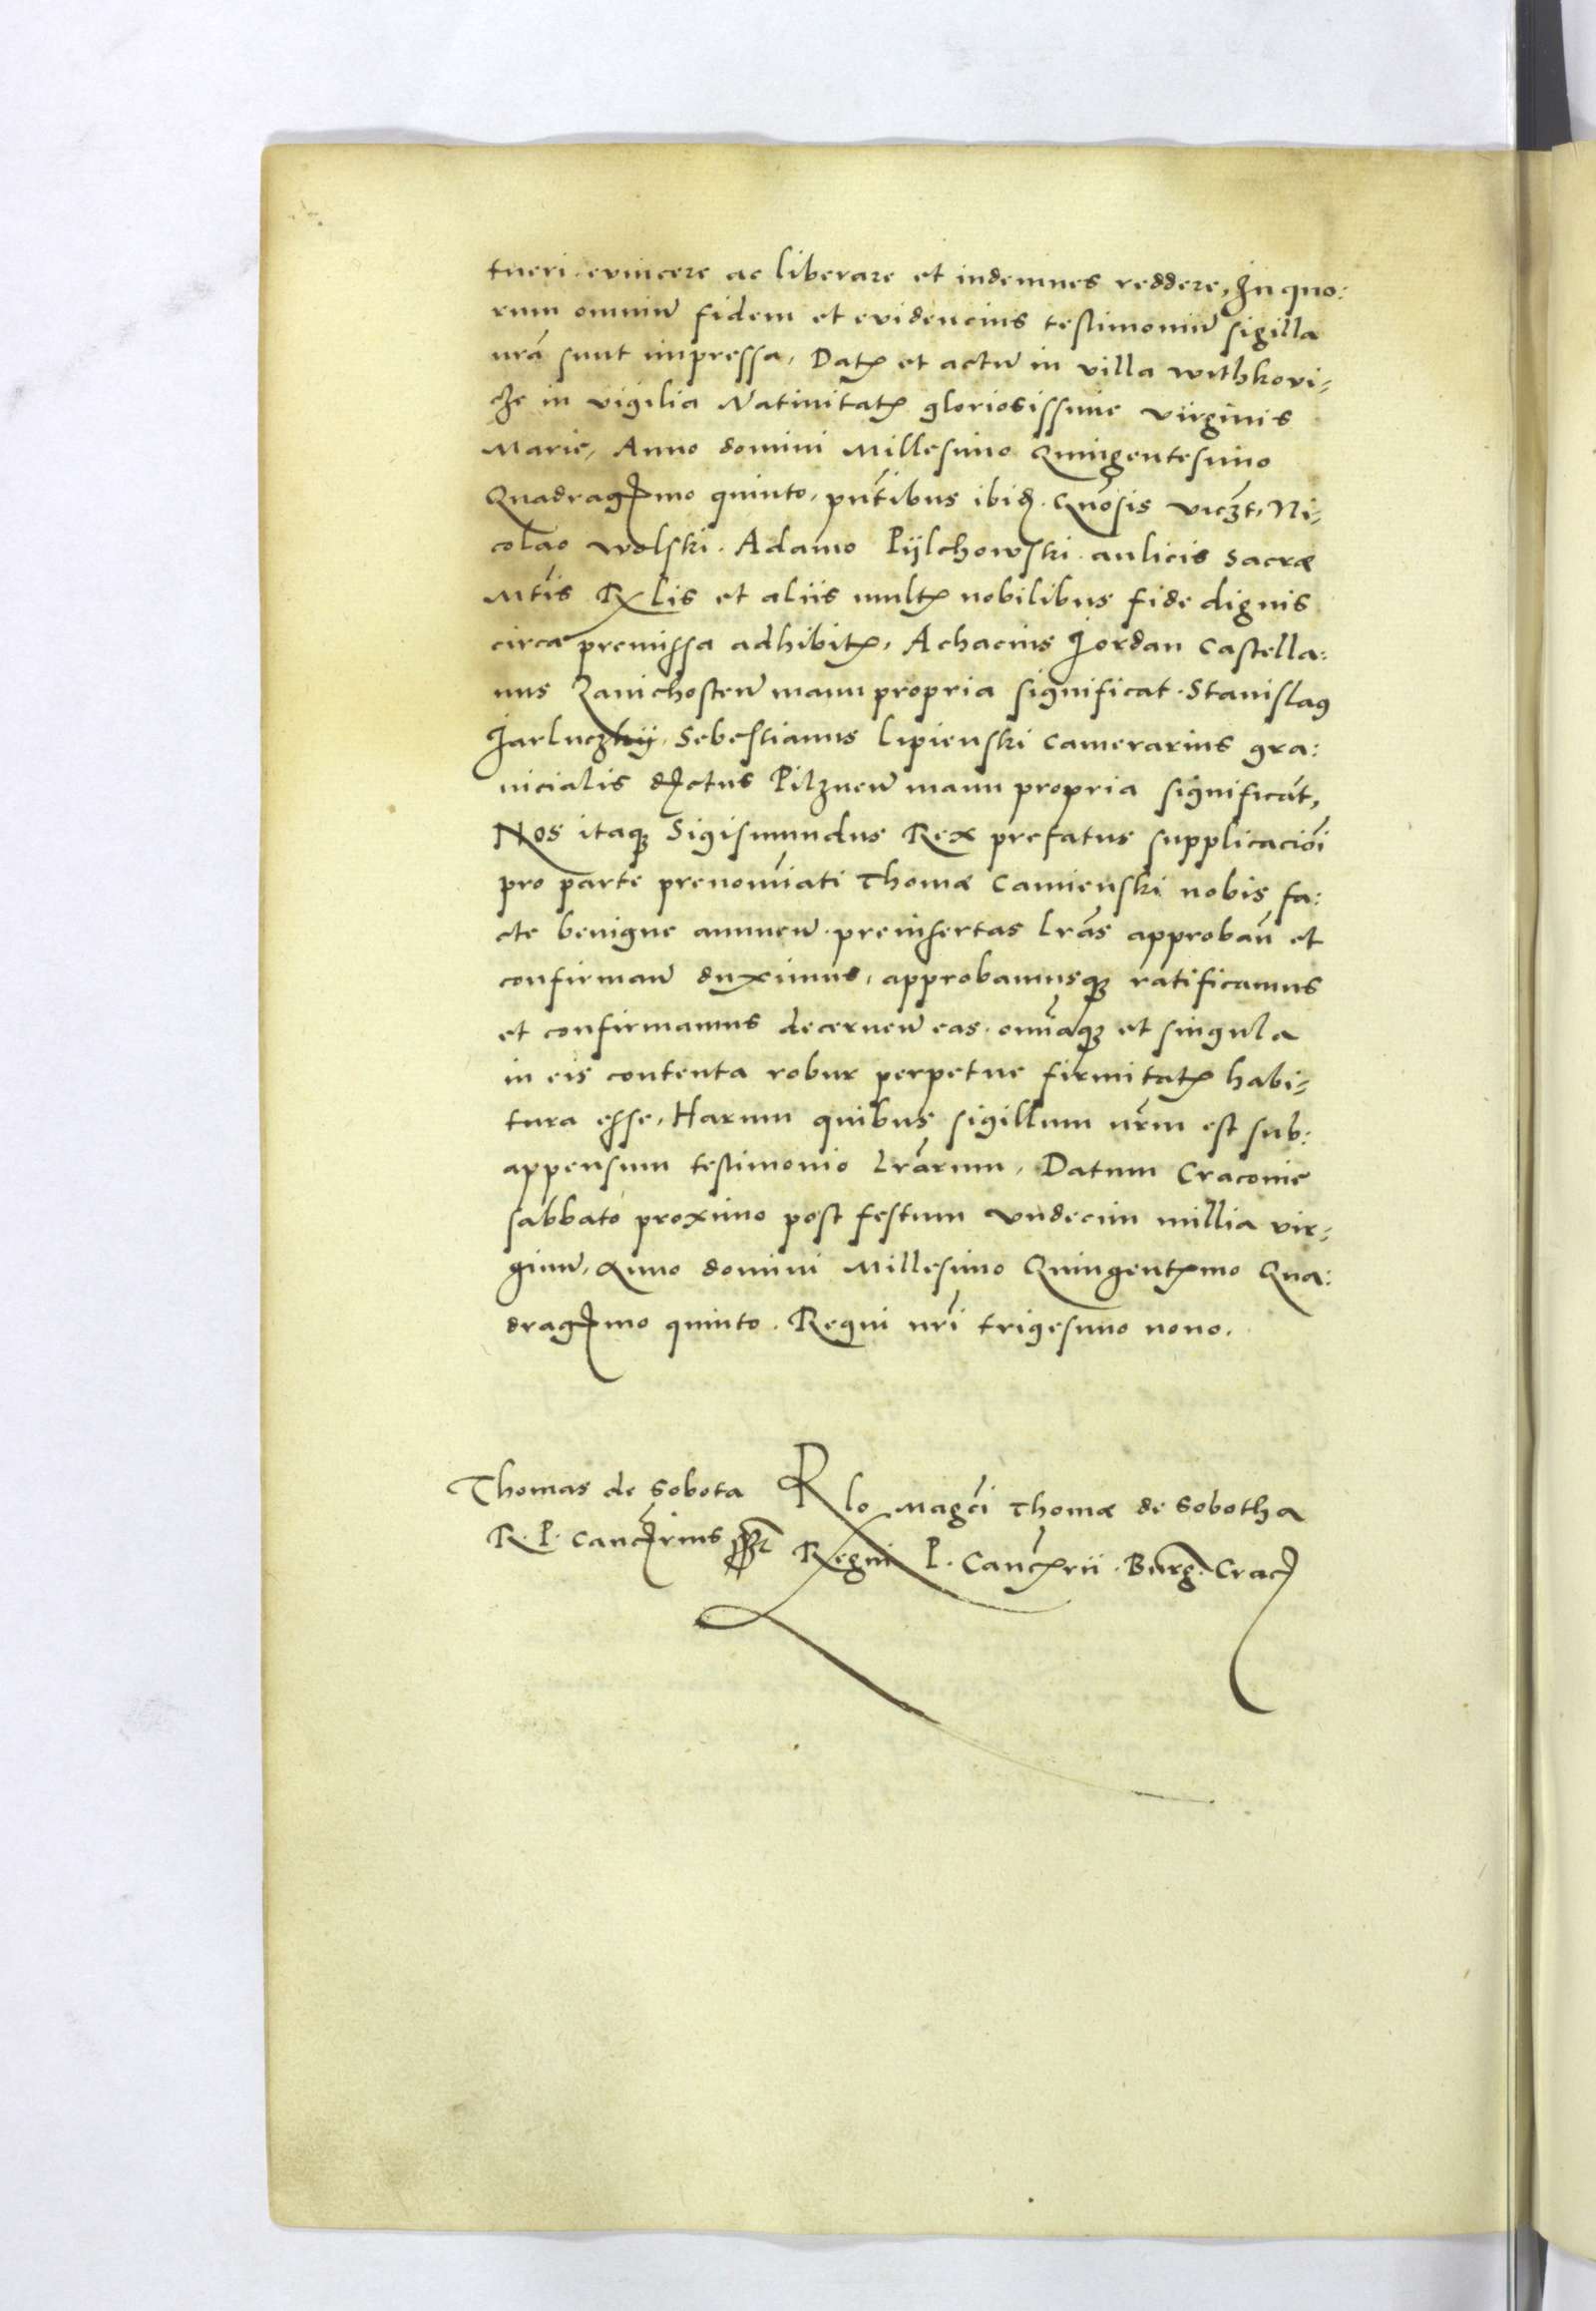 tueri evincere ac liberare et indemnes reddere, In quo:
rum omniu fidem et evidencius testimoniu sigilla
nrã sunt impressa, Datꝭ et actu in villa withkovi=
cze in vigilia Nativitatꝭ gloriosissime virginis
Marie, Anno domini Millesimo Quingentesimo
Quadragꝭmo quinto, pñtibus ibiđ. Gñosis viczt, Ni=
colao wolski. Adamo Pijlchowski aulicis sacræ
Mtis Rꝭlis et aliis multꝭ nobilibus fide dignis
circa premissa adhibitꝭ, Achacius Jordan Castella:
nus Zavichosten manu propria significat. Stanislaꝯ
Jarluczkij, Sebestianus Lipienski Camerarius gra:
nicialis dꝭctus Pilznen manu propria significãt,
Nos itaqꝫ Sigismundus Rex prefatus supplicaciõi
pro parte prenomĩati Thomæ Camienski nobis fa:
cte benigne annuen. preinsertas lrãs approbañ et
confirman duximus, approbamusqꝫ ratificamus
et confirmamus decernen eas, omĩaqꝫ et singula
in eis contenta robur perpetue firmitatꝭ habi=
tura esse, Harum quibus sigillum nrm̃ est sub:
appensum testimonio lrãrum, Datum Cracovie
sabbato proximo post festum Vndecim millia vir=
ginu, Anno domini Millesimo Quingentꝭmo Qua:
dragꝭmo quinto. Regni nrĩ trigesimo nono.
Thomas de Sobota
R. P. Cancꝭrius sst
Rlo Magci Thomæ de Sobotha
Regni P. Cancꝭrii. Burg. Cracꝭ